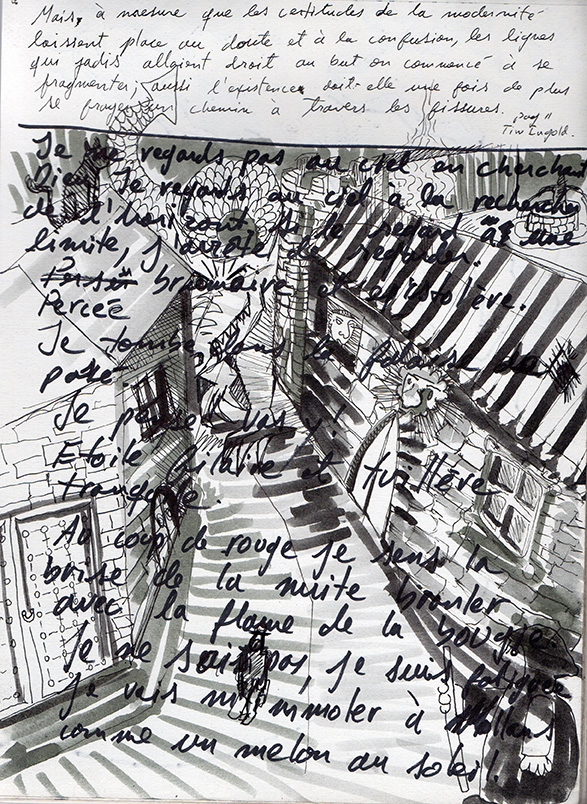 Mais, à mesure que les certitudes de la modernité
laissent place au doute et à la confusion, les lignes
qui jadis allaient droit au but on commencé à se
fragmenter; aussi l'existence doit-elle une fois de plus
se frayer un chemin à travers les fissures.
Tim Ingold.
Je ne regards pas au ciel en cherchant
Dieu. Je regards au ciel à la recherche
de l'horizont. Si le regard a une
limite, j'arrête de regarder.
brumaire et
Percée
Je tombe dans la falaise de
passé
Je pense "vas y!"
Etoile filaire et
tranquile.
Au coup de rouge je sens la
brise de la nuite branler
avec la flame de la bougie.
Je ne sais pas, je suis fatiguée
je vais m'immoler à Mollans
comme un melon au soleil!